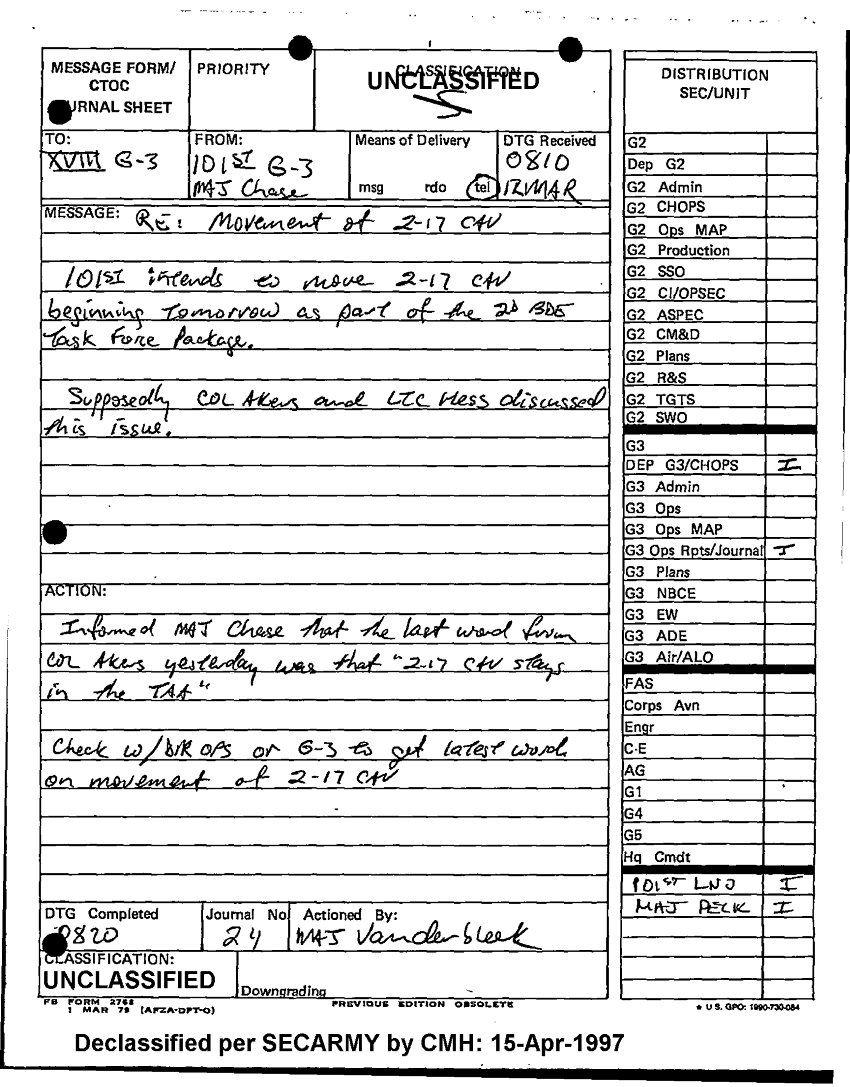 MESSAGE FORM/
CTOC
JOURNAL SHEET
PRIORITY
CLASSIFICATION
UNCLASSIFIED
TO:
XVIII G-3
FROM:
101ST G-3
MAJ Chase
Means of Delivery
msg rdo tel
DTG Received
0810
12MAR
MESSAGE: RE: Movement of 2-17 CAV
101ST intends to move 2-17 CAV
beginning Tomorrow as part of the 2D BDE
Task Force Package.
Supposedly COL Akers and LTC Hess discussed
this issue.
ACTION:
Informed MAJ Chase that the last word from
COL Akers yesterday was that "2-17 CAV stays
in the TAA"
Check w/DIR OPS or G-3 to get latest word
on movement of 2-17 CAV
DTG Completed
0820
Journal No
24
Actioned By:
MAJ Vanderbleek
CLASSIFICATION:
UNCLASSIFIED
Downgrading
FB FORM 2768
1 MAR 79 (AFZA-DPT-O)
PREVIOUS EDITION OBSOLETE
DISTRIBUTION
SEC/UNIT
G2
Dep G2
G2 Admin
G2 CHOPS
G2 Ops MAP
G2 Production
G2 SSO
G2 CI/OPSEC
G2 ASPEC
G2 CM&D
G2 Plans
G2 R&S
G2 TGTS
G2 SWO
G3
DEP G3/CHOPS I
G3 Admin
G3 Ops
G3 Ops MAP
G3 Ops Rpts/Journal I
G3 Plans
G3 NBCE
G3 EW
G3 ADE
G3 Air/ALO
FAS
Corps Avn
Engr
C-E
AG
G1
G4
G5
Hq Cmdt
101ST LNO I
MAJ PECK I
★ U S. GPO: 1990-730-084
Declassified per SECARMY by CMH: 15-Apr-1997